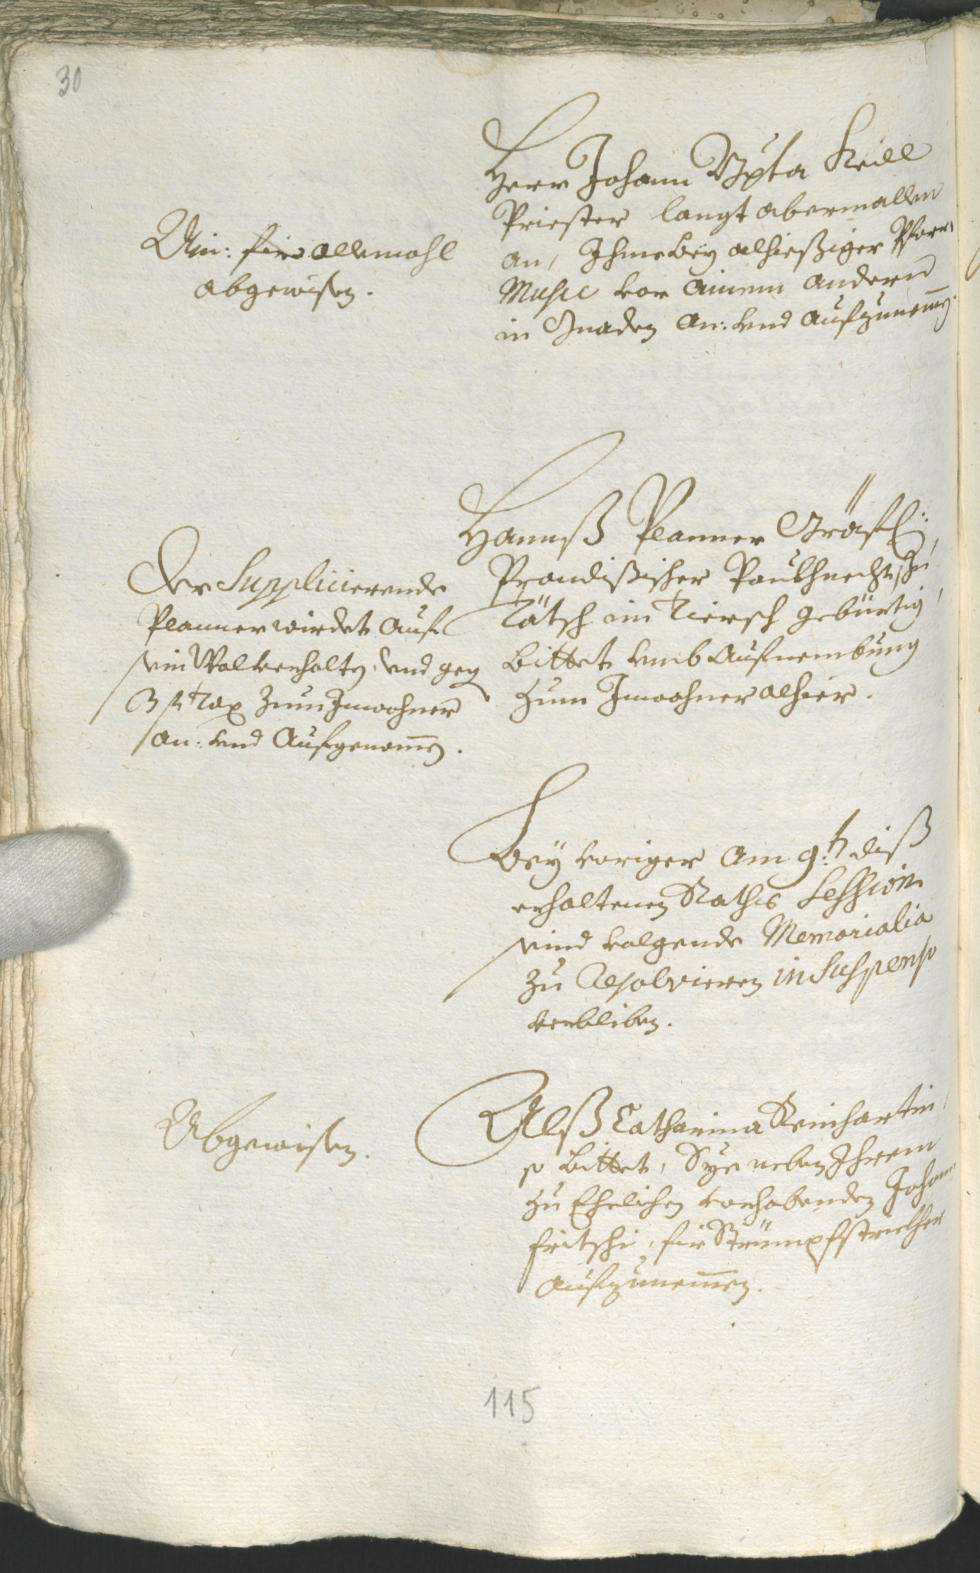 30
Herr Johann Bpta Keill
Priester langt abermallen
an, Ihme bey alhießiger Pfarr
Music vor ainem andern
in Gnaden an: und aufzunemen.
Ain: für allemahl
abgewisen.
Hannß Planner Gräfl:
Prandißischer Paukhnecht, zu
Tätsch im Viersch gebürtig,
bittet umb Aufnembung
zum Inwohner alhier.
Der Supplicierende
Planner wirdet auf
sein Wolverhalten und gegen
3 f Tax zum Inwohner
an: und aufgenomen.
Bey voriger am 9.t diß
erhaltenen Raths Session
sind volgende Memorialia
zu resolvieren in Suspenso
verbliben.
Alß Catharina Reinhartin,
so bittet, Sye neben Ihrem
zu Ehelichen vorhabenden Johann
Fritschi, für Strümpfstrickher
aufzunemen.
Abgewisen.
115